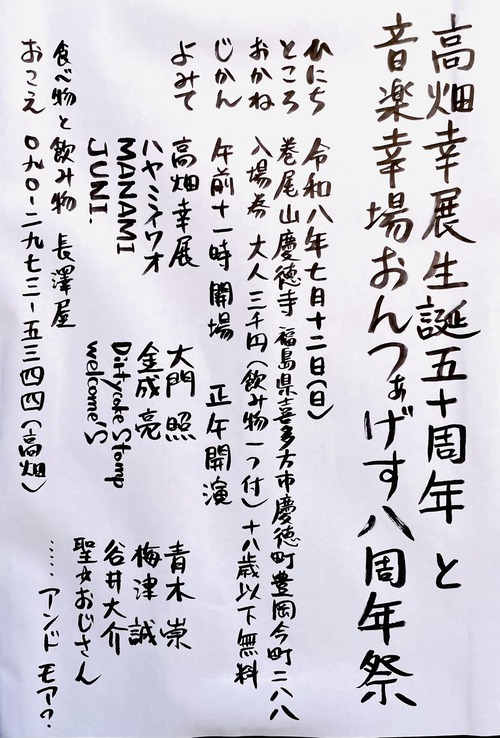 高畑幸展生誕五十周年と
音楽幸場おんつぁげす八周年祭
ひにち 令和八年七月十二日(日)
ところ 巻尾山慶徳寺 福島県喜多方市慶徳町豊岡今町二八八
おかね 入場券 大人三千円(飲み物一つ付)十八歳以下無料
じかん 午前十一時開場 正午開演
よみて 高畑幸展 大門照 青木崇
ハヤミイワオ 金成亮 梅津誠
MANAMI Dirtycoke Stomp 谷井大介
JUNI. welcome'S 聖女おじさん
……アンドモア?
食べ物と飲み物 長澤屋
おこえ 〇九〇-二九七三-五三四四(高畑)